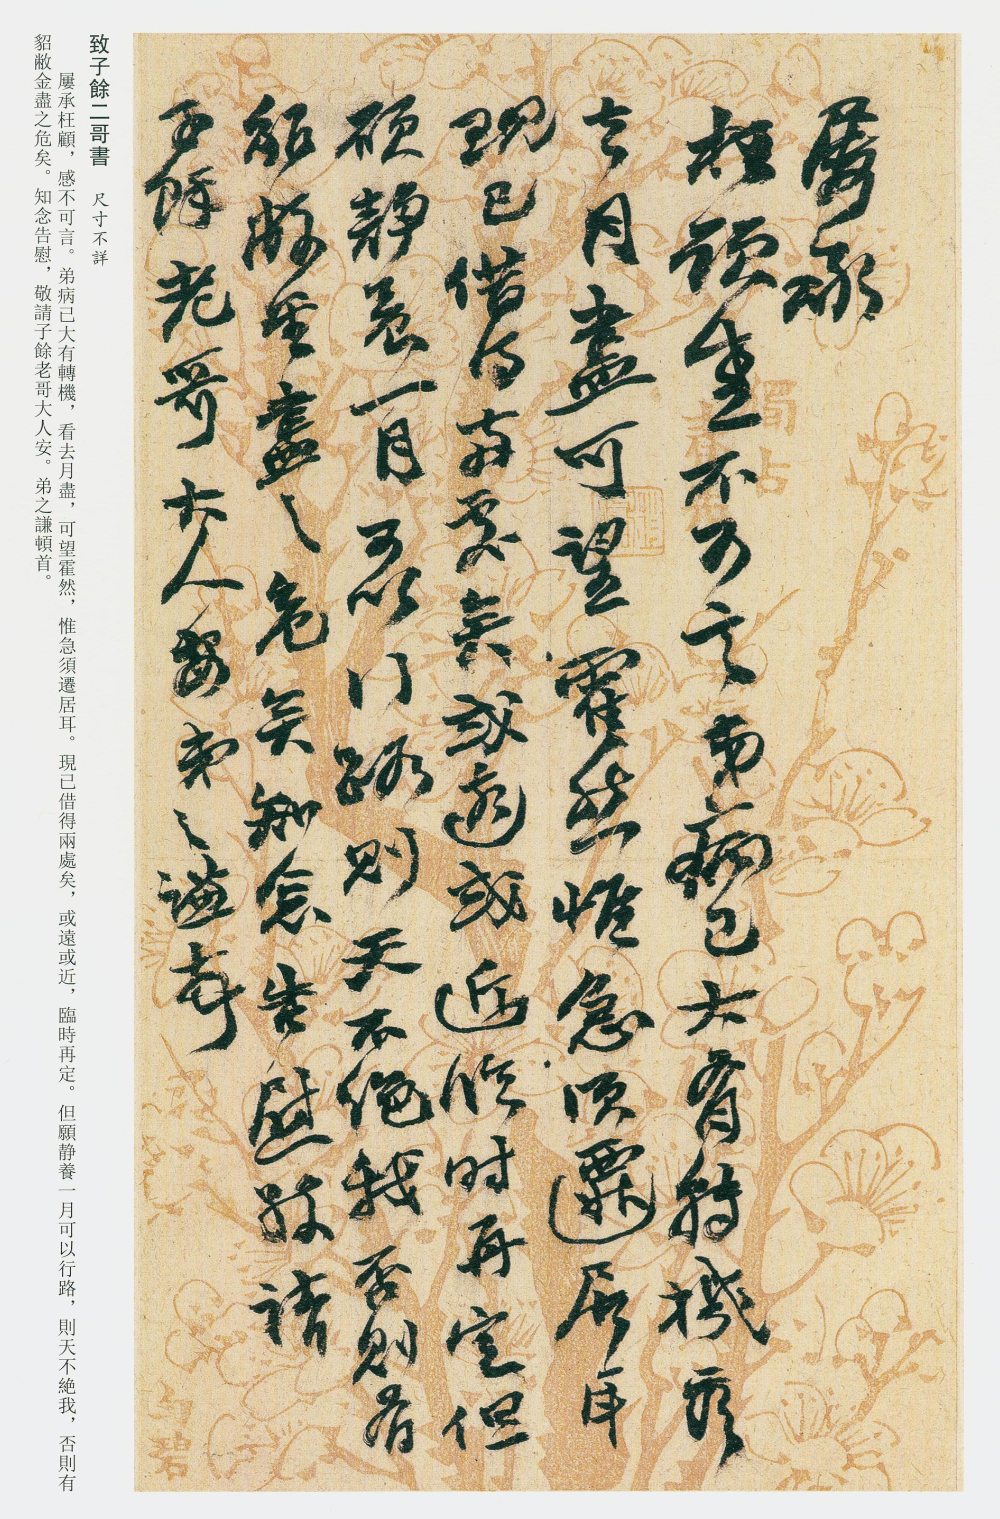 屢承
枉顧感不可言弟病已大有轉機看
去月盡可望霍然惟急須遷居耳
現已借得兩處矣或遠或近臨時再定但
願靜養一月可以行路則天不絕我否則有
貂敝金盡之危矣知念告慰敬請
子餘老哥大人安弟之謙頓首
致子餘二哥書 尺寸不詳
屢承枉顧，感不可言。弟病已大有轉機，看去月盡，可望霍然，惟急須遷居耳。現已借得兩處矣，或遠或近，臨時再定。但願静養一月可以行路，則天不絕我，否則有
貂敝金盡之危矣。知念告慰，敬請子餘老哥大人安。弟之謙頓首。